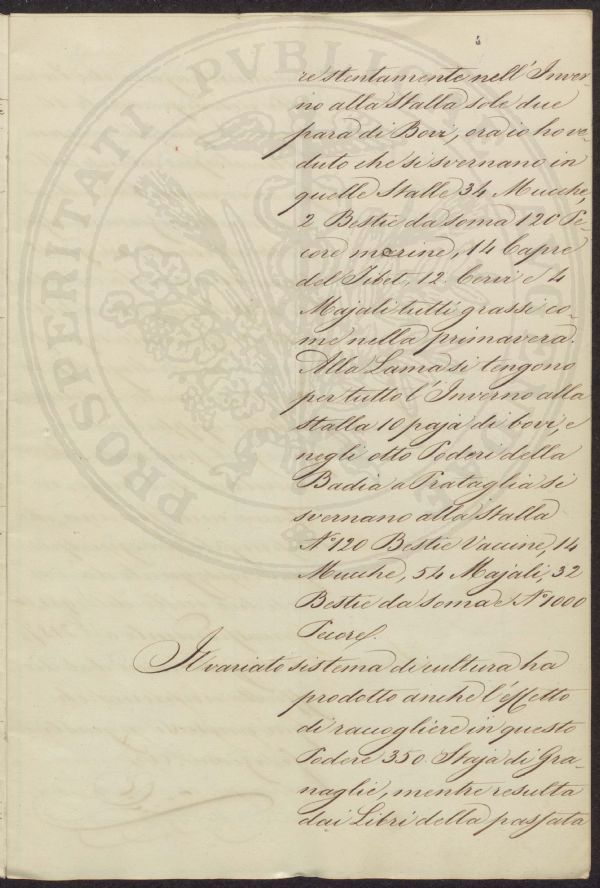 PROSPERITATI PUBLICAE AUGENDAE
re stentamente nell' Inver-
no alla Stalla sole due
para di Bovi, ora io ho ve-
duto che si svernano in
quelle Stalle 34 Mucche,
2 Bestie da Soma 120 Pe-
core merine, 14 Capre
del Tibet, 12. Cervi e 4
Majali tutti grassi co-
me nella primavera.
Alla Lama si tengono
per tutto l' Inverno alla
Stalla 10 paja di bovi e
negli otto Poderi della
Badia a Prataglia si
svernano alla Stalla
N.° 120 Bestie Vaccine, 14
Mucche, 54 Majali, 32
Bestie da Soma e N.° 1000
Pecore.
Il variato sistema di cultura ha
prodotto anche l' effetto
di raccogliere in questo
Podere 350. Staja di Gra-
naglie, mentre resulta
dai Libri della passata